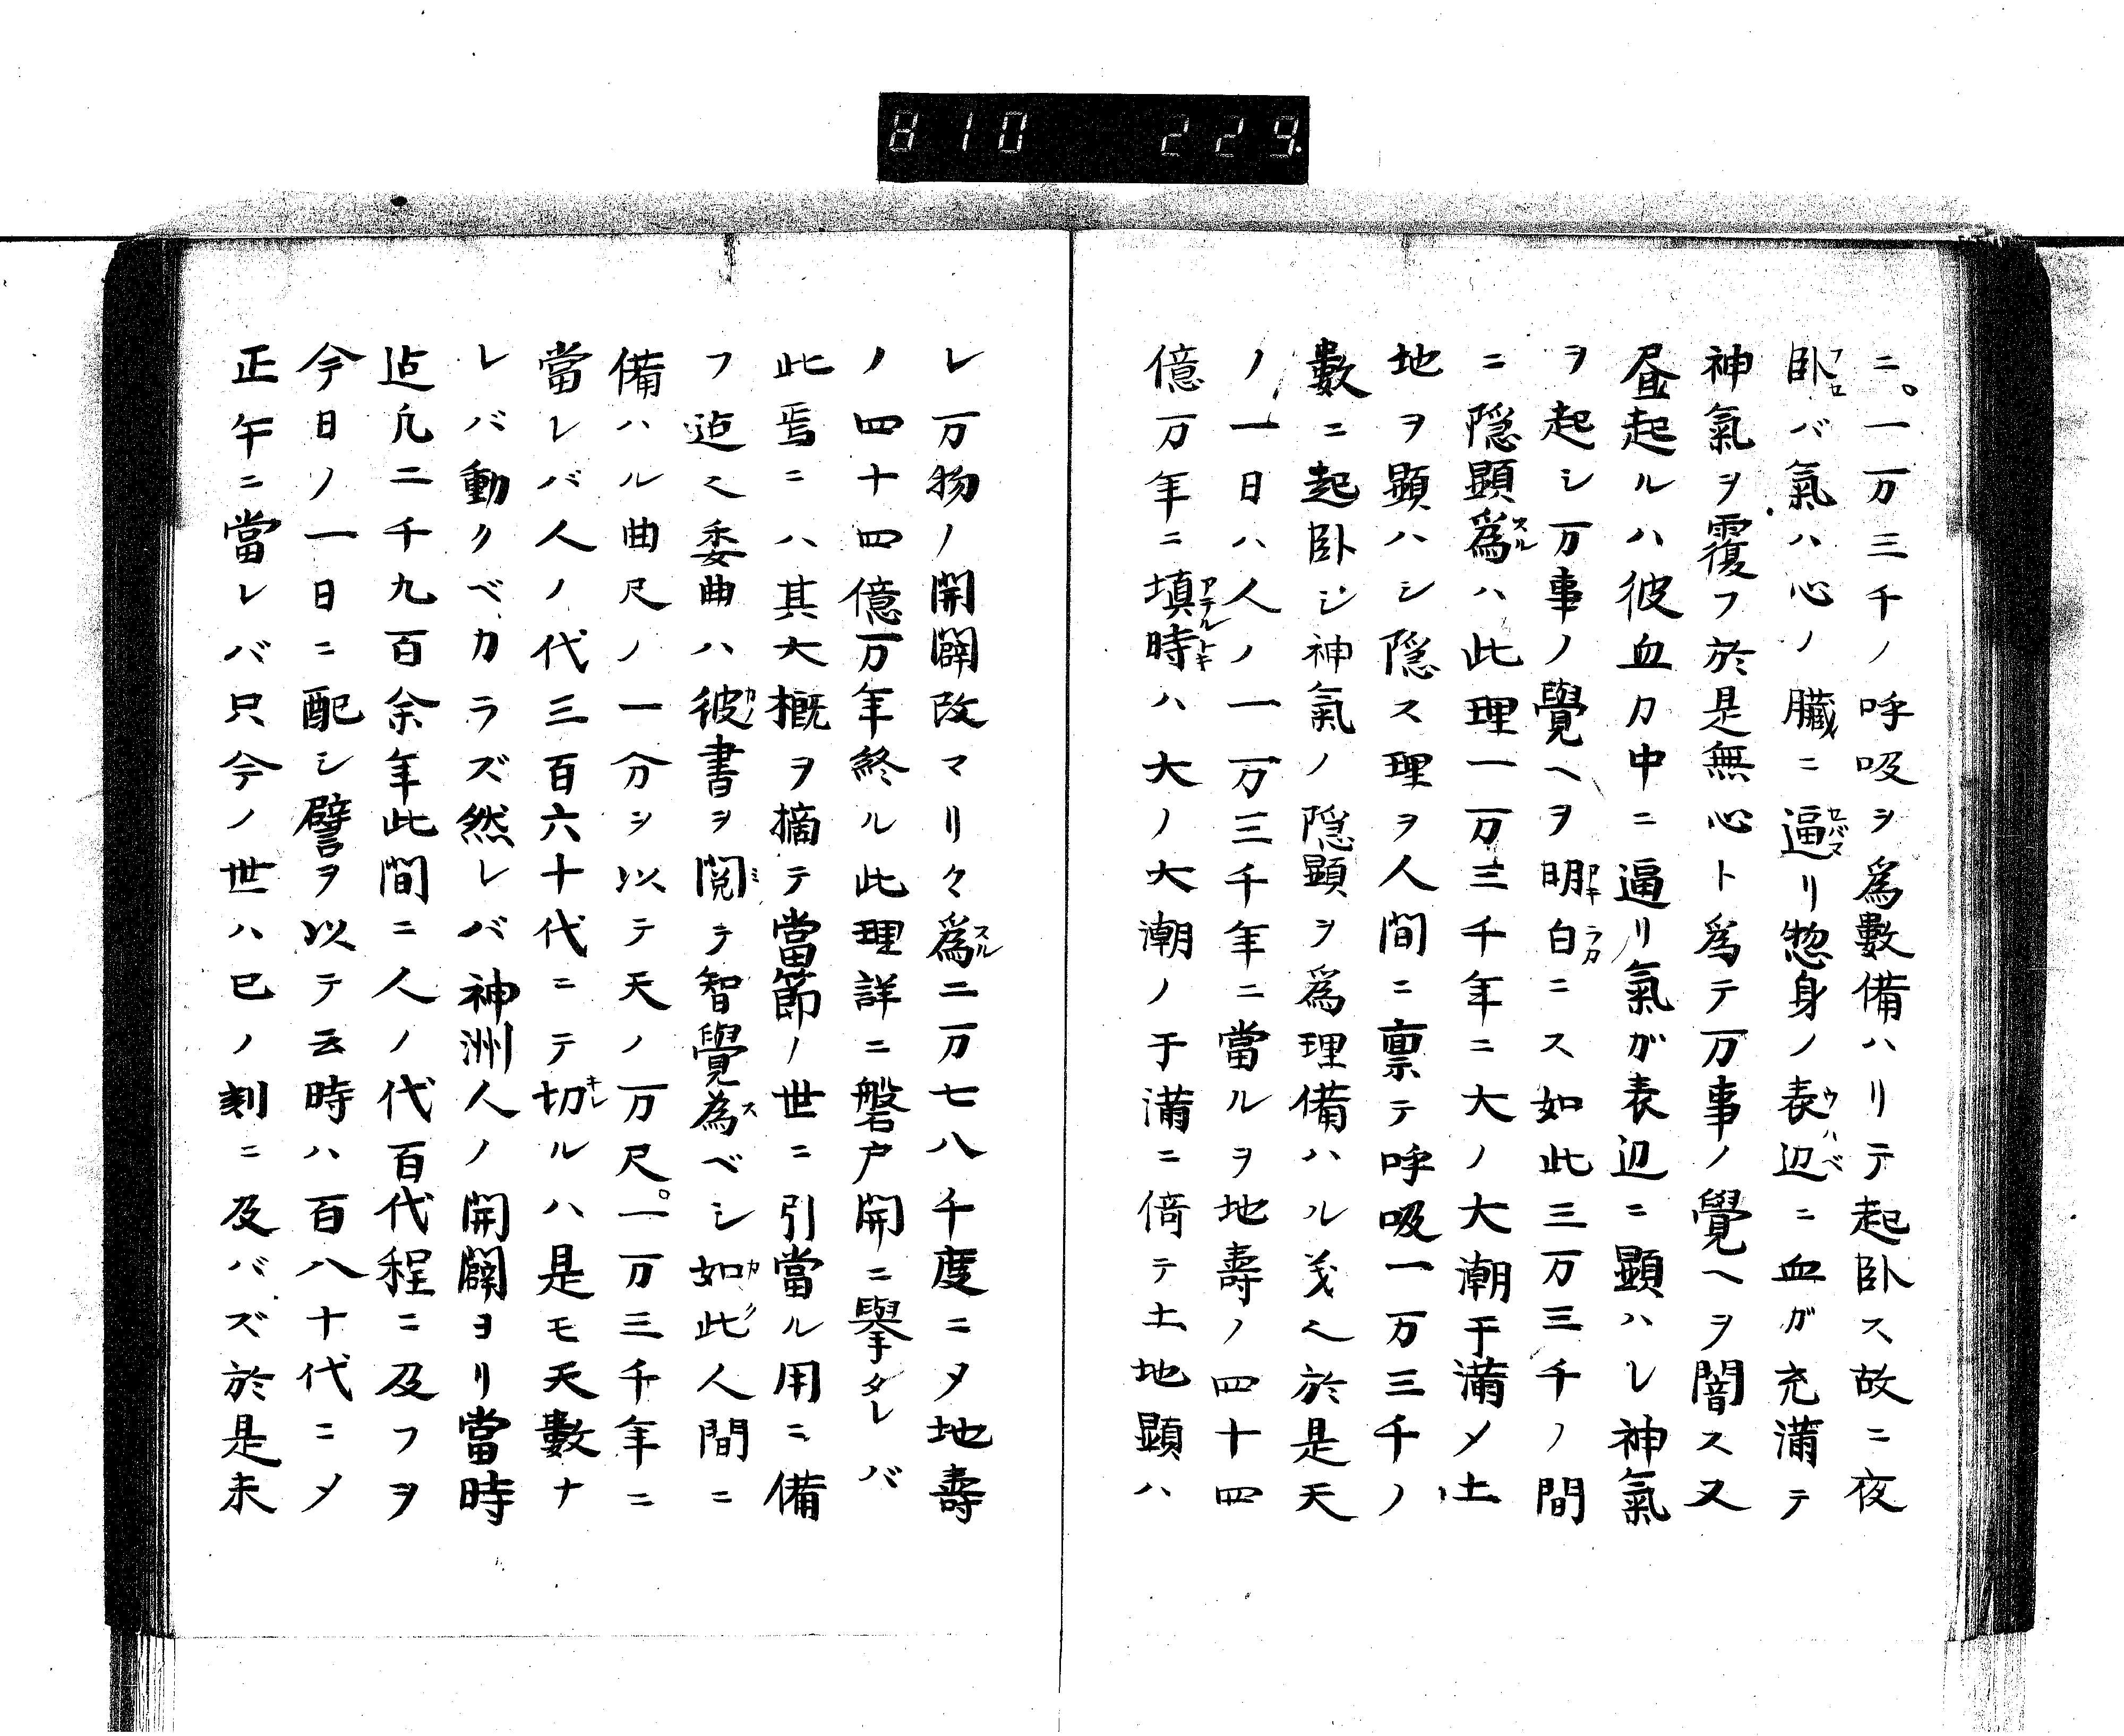 810 229.
ニ。一万三千ノ呼吸ヲ爲數備ハリテ起臥ス故ニ夜
臥バ氣ハ心ノ臓ニ逼リ惣身ノ表辺ニ血ガ充満テ
神氣ヲ覆フ於是無心ト爲テ万事ノ覺ヘヲ闇ス又
昼起ルハ彼血カ中ニ逼リ氣ガ表辺ニ顯ハレ神氣
ヲ起シ万事ノ覺ヘヲ明白ニス如此三万三千ノ間
ニ隠顯爲ハ此理一万三千年ニ大ノ大潮干満〆土
地ヲ顯ハシ隠ス理ヲ人間ニ禀テ呼吸一万三千ノ
數ニ起臥シ神氣ノ隠顯ヲ爲理備ハル㒵乀於是天
ノ一日ハ人ノ一万三千年ニ當ルヲ地壽ノ四十四
億万年ニ填時ハ大ノ大潮ノ干満ニ倚テ土地顯ハ
レ万物ノ開闢改マリ々爲二万七八千度ニタ地壽
ノ四十四億万年終ル此理詳ニ磐戸開ニ擧タレバ
此焉ニハ其大概ヲ摘テ當節ノ世ニ引當ル用ニ備
フ迠乀委曲ハ彼書ヲ閲テ智覺為ベシ如此人間ニ
備ハル曲尺ノ一分シ以テ天ノ万尺。一万三千年ニ
當レバ人ノ代三百六十代ニテ切ルハ是モ天數ナ
レバ動クベカラズ然レバ神洲人ノ開闢ヨリ當時
迠凢二千九百余年此間ニ人ノ代百代程ニ及フヲ
今日ノ一日ニ配シ譬ヲ以テ云時ハ百八十代ニ〆
正午ニ當レバ只今ノ世ハ巳ノ刻ニ及バズ於是未